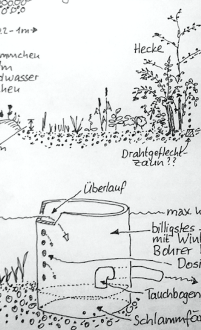 0.2-1m
Hecke
Drahtgeflecht
zaun??
Überlauf
max. W
billigstes
mit Wink
Bohrer
Dosi
Tauchbogen
Schlammfa